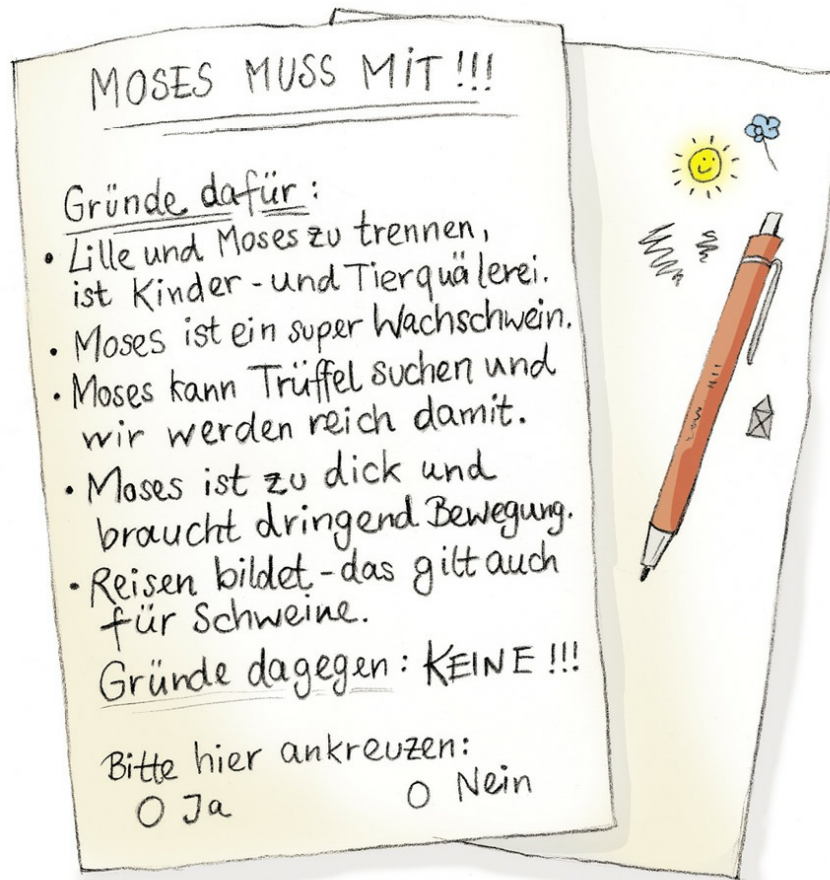 MOSES MUSS MIT!!!
Gründe dafür:
• Lille und Moses zu trennen,
ist Kinder- und Tierquälerei.
• Moses ist ein super Wachschwein.
• Moses kann Trüffel suchen und
wir werden reich damit.
• Moses ist zu dick und
braucht dringend Bewegung.
• Reisen bildet - das gilt auch
für Schweine.
Gründe dagegen: KEINE!!!
Bitte hier ankreuzen:
O Ja O Nein